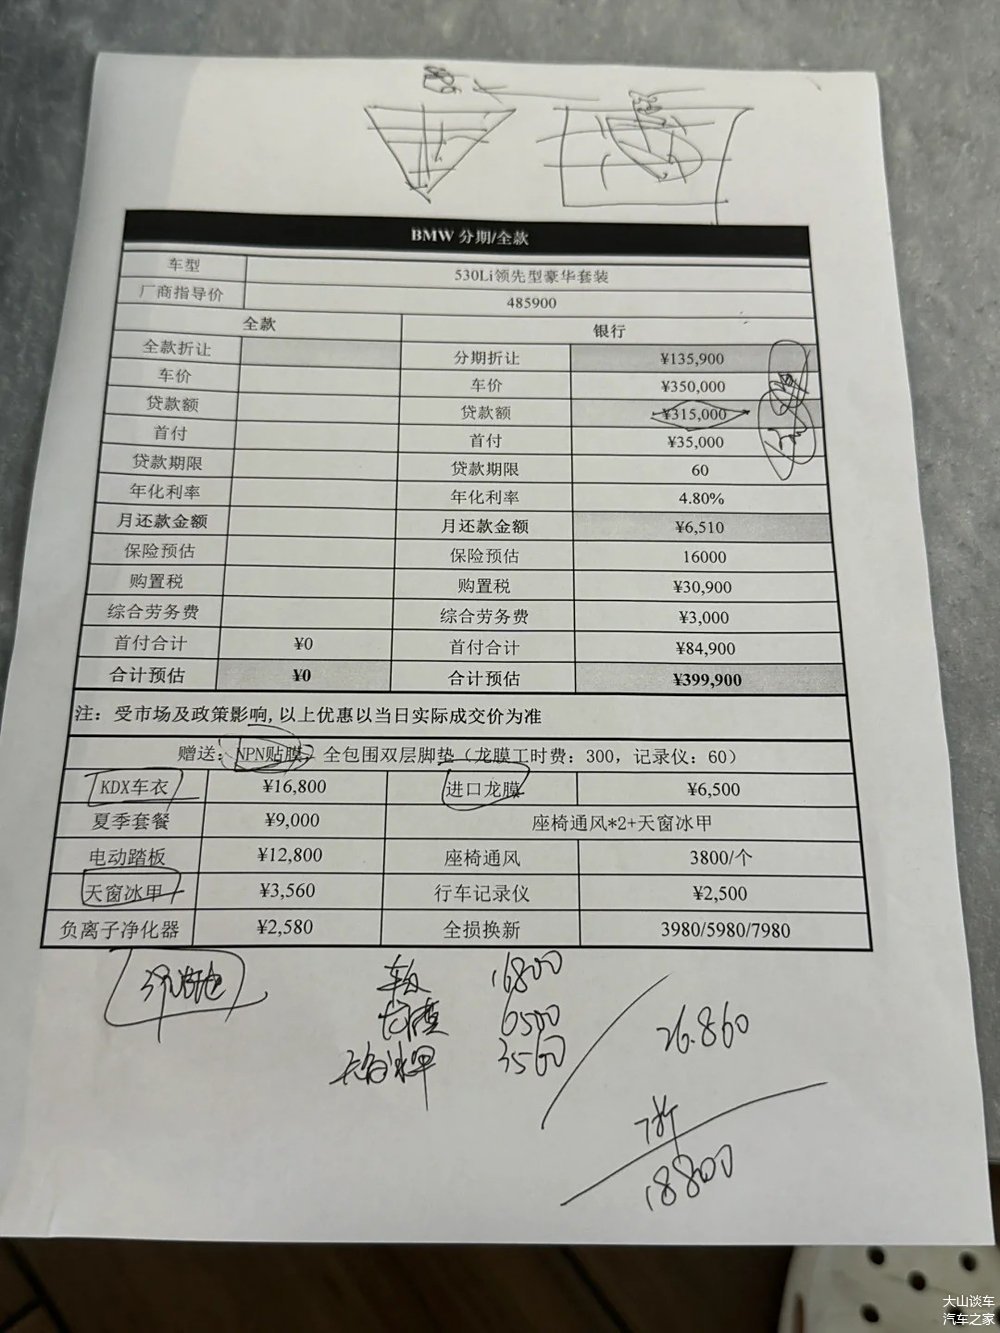 BMW 分期/全款
车型 530Li领先型豪华套装
厂商指导价 485900
全款 银行
全款折让 分期折让 ¥135,900
车价 车价 ¥350,000
贷款额 贷款额 ¥315,000
首付 首付 ¥35,000
贷款期限 贷款期限 60
年化利率 年化利率 4.80%
月还款金额 月还款金额 ¥6,510
保险预估 保险预估 16000
购置税 购置税 ¥30,900
综合劳务费 综合劳务费 ¥3,000
首付合计 ¥0 首付合计 ¥84,900
合计预估 ¥0 合计预估 ¥399,900
注：受市场及政策影响,以上优惠以当日实际成交价为准
赠送：NPN贴膜，全包围双层脚垫（龙膜工时费：300，记录仪：60）
KDX车衣 ¥16,800 进口龙膜 ¥6,500
夏季套餐 ¥9,000 座椅通风*2+天窗冰甲
电动踏板 ¥12,800 座椅通风 3800/个
天窗冰甲 ¥3,560 行车记录仪 ¥2,500
负离子净化器 ¥2,580 全损换新 3980/5980/7980
车衣 16800
龙膜 6500
天窗冰甲 3560
26.860
7折
18800
大山谈车
汽车之家